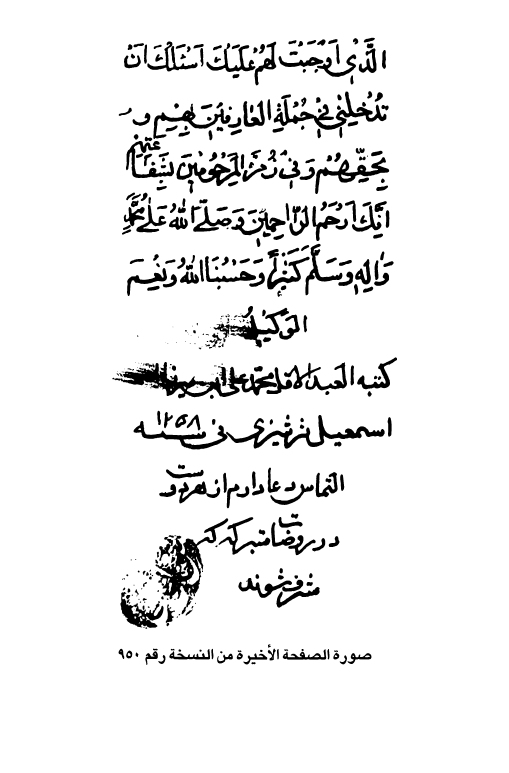 الَّذِي اَوْجَبْتَ لَهُمْ عَلَيْكَ اَسْئَلُكَ اَنْ
تُدْخِلَنِي فِي جُمْلَةِ الْعَارِفِينَ بِهِمْ وَ
بِحَقِّهِمْ وَفِي زُمْرَةِ الْمَرْحُومِينَ بِشَفَاعَتِهِمْ
اِنَّكَ اَرْحَمُ الرَّاحِمِينَ وَصَلَّى اللهُ عَلَى مُحَمَّدٍ
وَآلِهِ وَسَلَّمَ كَثِيراً وَحَسْبُنَا اللهُ وَنِعْمَ
الْوَكِيلُ
كتبه العبد الاقل محمد على ابن ميرزا
اسمعيل ترشيزى فى سنه ١٢٥٨
التماس دعا دارم از هر دوست
در روضات متبركه كه
مشرف شوند
صورة الصفحة الأخيرة من النسخة رقم ٩٥٠